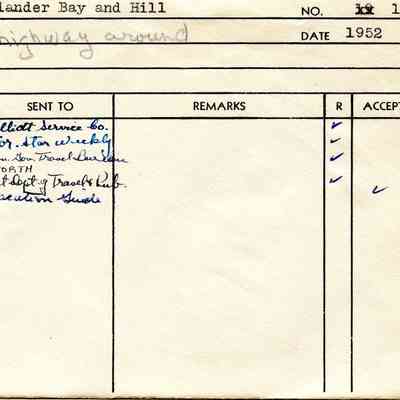 lander Bay and Hill NO. 19 1
highway around
DATE 1952
SENT TO REMARKS R ACCEPT
lliott Service Co. ✓
or. Star Weekly ✓
Gov. Travel Bureau ✓
ORTH
t Dept. of Travel & Pub. ✓ ✓
acation Guide